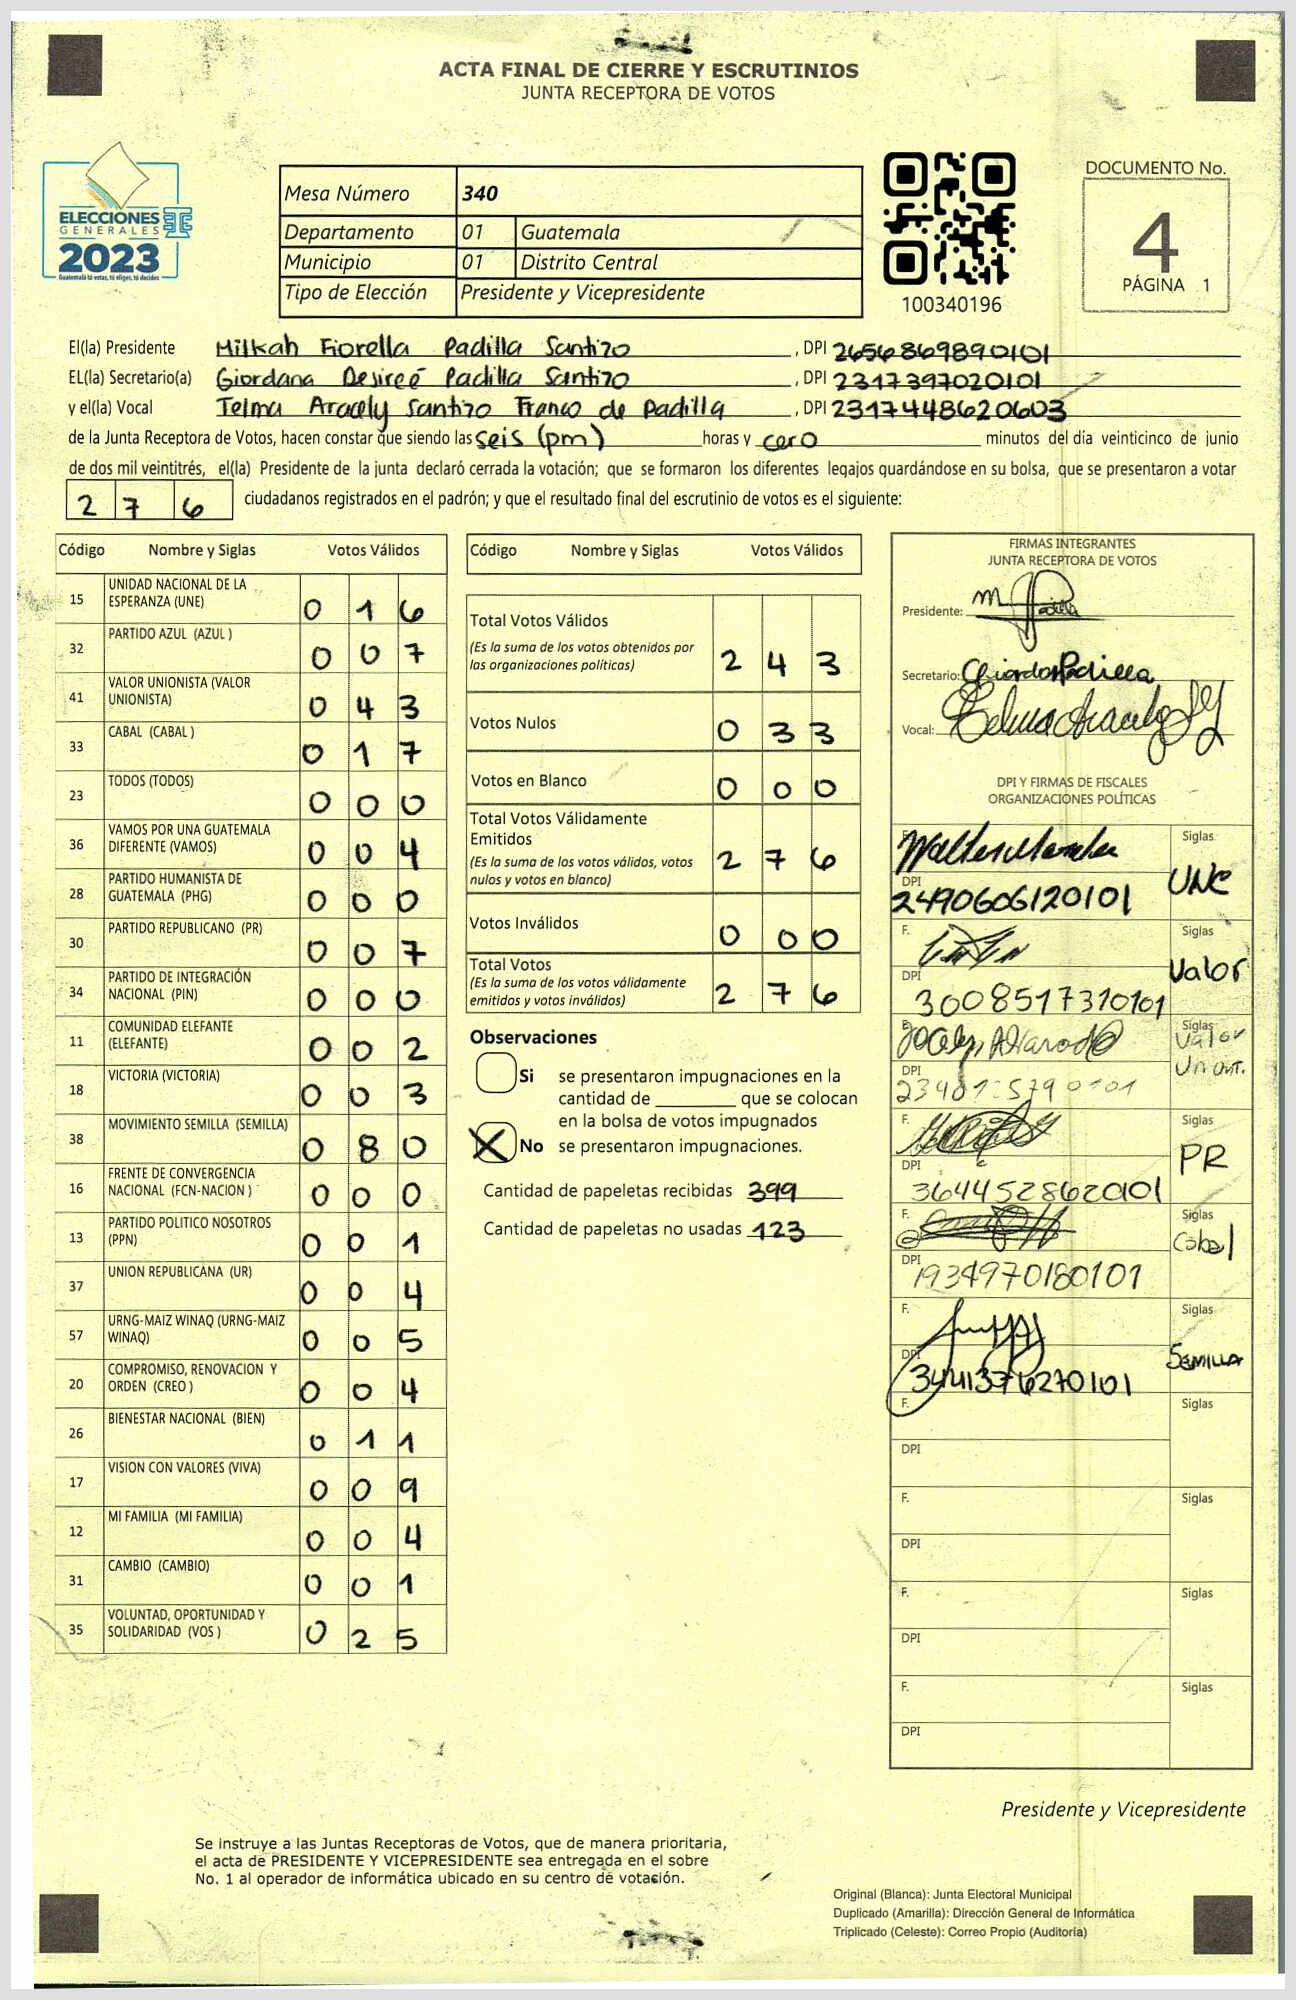 ACTA FINAL DE CIERRE Y ESCRUTINIOS
JUNTA RECEPTORA DE VOTOS
ELECCIONES
GENERALES
2023
Guatemala tú votas, tú eliges, tú decides
Mesa Número 340
Departamento 01 Guatemala
Municipio 01 Distrito Central
Tipo de Elección Presidente y Vicepresidente
100340196
DOCUMENTO No.
4
PÁGINA 1
El(la) Presidente Milkah Fiorella Padilla Santizo, DPI 2656869890101
EL(la) Secretario(a) Giordana Desireé Padilla Santizo, DPI 2317397020101
y el(la) Vocal Telma Aracely Santizo Franco de Padilla, DPI 2317448620603
de la Junta Receptora de Votos, hacen constar que siendo las seis (pm) horas y cero minutos del día veinticinco de junio
de dos mil veintitrés, el(la) Presidente de la junta declaró cerrada la votación; que se formaron los diferentes legajos quardándose en su bolsa, que se presentaron a votar
2 7 6 ciudadanos registrados en el padrón; y que el resultado final del escrutinio de votos es el siguiente:
Código Nombre y Siglas Votos Válidos
15 UNIDAD NACIONAL DE LA ESPERANZA (UNE) 0 1 6
32 PARTIDO AZUL (AZUL ) 0 0 7
41 VALOR UNIONISTA (VALOR UNIONISTA) 0 4 3
33 CABAL (CABAL ) 0 1 7
23 TODOS (TODOS) 0 0 0
36 VAMOS POR UNA GUATEMALA DIFERENTE (VAMOS) 0 0 4
28 PARTIDO HUMANISTA DE GUATEMALA (PHG) 0 0 0
30 PARTIDO REPUBLICANO (PR) 0 0 7
34 PARTIDO DE INTEGRACIÓN NACIONAL (PIN) 0 0 0
11 COMUNIDAD ELEFANTE (ELEFANTE) 0 0 2
18 VICTORIA (VICTORIA) 0 0 3
38 MOVIMIENTO SEMILLA (SEMILLA) 0 8 0
16 FRENTE DE CONVERGENCIA NACIONAL (FCN-NACION ) 0 0 0
13 PARTIDO POLITICO NOSOTROS (PPN) 0 0 1
37 UNION REPUBLICANA (UR) 0 0 4
57 URNG-MAIZ WINAQ (URNG-MAIZ WINAQ) 0 0 5
20 COMPROMISO, RENOVACION Y ORDEN (CREO ) 0 0 4
26 BIENESTAR NACIONAL (BIEN) 0 1 1
17 VISION CON VALORES (VIVA) 0 0 9
12 MI FAMILIA (MI FAMILIA) 0 0 4
31 CAMBIO (CAMBIO) 0 0 1
35 VOLUNTAD, OPORTUNIDAD Y SOLIDARIDAD (VOS ) 0 2 5
Código Nombre y Siglas Votos Válidos
Total Votos Válidos 2 4 3
(Es la suma de los votos obtenidos por
las organizaciones políticas)
Votos Nulos 0 3 3
Votos en Blanco 0 0 0
Total Votos Válidamente
Emitidos 2 7 6
(Es la suma de los votos válidos, votos
nulos y votos en blanco)
Votos Inválidos 0 0 0
Total Votos 2 7 6
(Es la suma de los votos válidamente
emitidos y votos inválidos)
Observaciones
Si se presentaron impugnaciones en la
cantidad de ________ que se colocan
en la bolsa de votos impugnados
X No se presentaron impugnaciones.
Cantidad de papeletas recibidas 399
Cantidad de papeletas no usadas 123
FIRMAS INTEGRANTES
JUNTA RECEPTORA DE VOTOS
Presidente:
Secretario:
Vocal:
DPI Y FIRMAS DE FISCALES
ORGANIZACIONES POLÍTICAS
F. Siglas UNE
DPI 2490606120101
F. Siglas Valor
DPI 3008517310101
F. Jocelyn Alvarado Siglas Valor
DPI
F. Siglas PR
DPI 3644528620101
F. Siglas Cabal
DPI 1934970180101
F. Siglas SEMILLA
DPI 3441376270101
F. Siglas
DPI
F. Siglas
DPI
F. Siglas
DPI
F. Siglas
DPI
Presidente y Vicepresidente
Se instruye a las Juntas Receptoras de Votos, que de manera prioritaria,
el acta de PRESIDENTE Y VICEPRESIDENTE sea entregada en el sobre
No. 1 al operador de informática ubicado en su centro de votación.
Original (Blanca): Junta Electoral Municipal
Duplicado (Amarilla): Dirección General de Informática
Triplicado (Celeste): Correo Propio (Auditoría)